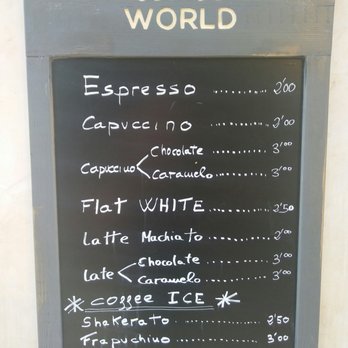 WORLD
Espresso .......... 2'00
Capuccino .......... 2'00
Chocolate ........ 3'00
Capuccino
Caramelo ........ 3'00
Flat WHITE .......... 2'50
Latte Machiato ........ 2'00
Chocolate ........ 3'00
Late
Caramelo ........ 3'00
* Coffee ICE *
Shakerato .......... 2'50
Frapuchino .......... 3'00